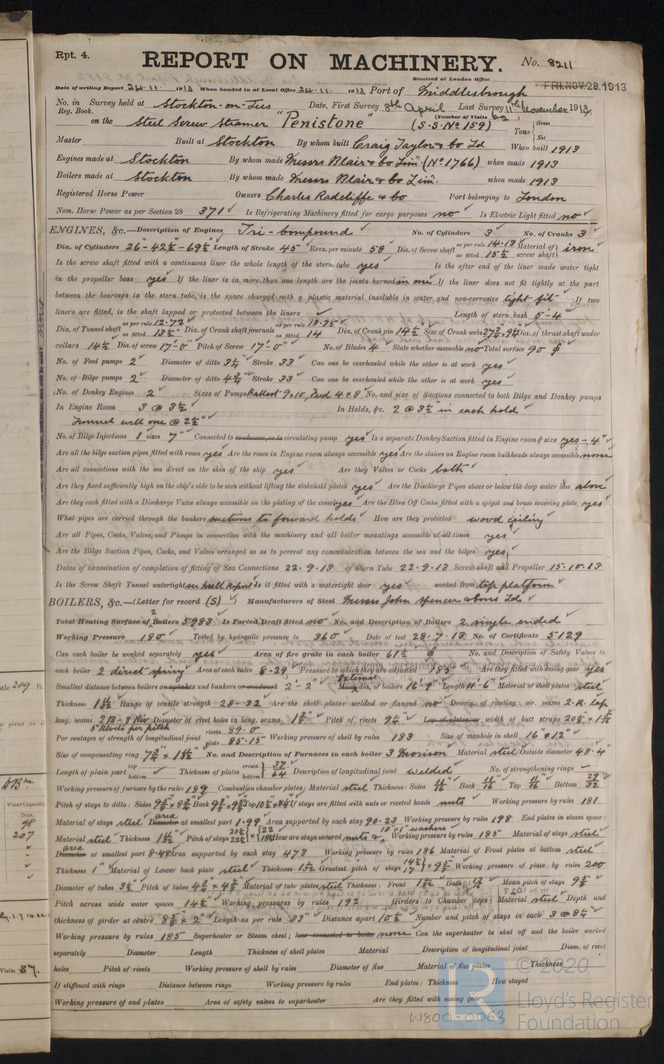 Rpt. 4.
REPORT ON MACHINERY.
No. 8211
Received at London Office FRI. NOV. 28. 1913
Date of writing Report 24.11.1913 When handed in at Local Office 24.11.1913 Port of Middlesbrough
No. in Reg. Book. Survey held at Stockton-on-Tees Date, First Survey 8th April Last Survey 11th November 1913
(Number of Visits
on the Steel Screw Steamer "Penistone" (S.S. No 159) Tons Gross Net
Master Built at Stockton By whom built Craig Taylor & Co Ld When built 1913
Engines made at Stockton By whom made Messrs Blair & Co Lim. (No 1766) when made 1913
Boilers made at Stockton By whom made Messrs Blair & Co Lim. when made 1913
Registered Horse Power Owners Charles Radcliffe & Co Port belonging to London
Nom. Horse Power as per Section 28 371 Is Refrigerating Machinery fitted for cargo purposes no Is Electric Light fitted no
ENGINES, &c.—Description of Engines Tri-Compound No. of Cylinders 3 No. of Cranks 3
Dia. of Cylinders 26"-42½"-69½" Length of Stroke 45" Revs. per minute 58 Dia. of Screw shaft as per rule 14.18 as fitted 15½ Material of screw shaft iron
Is the screw shaft fitted with a continuous liner the whole length of the stern tube yes Is the after end of the liner made water tight
in the propeller boss yes If the liner is in more than one length are the joints burned in one If the liner does not fit tightly at the part
between the bearings in the stern tube, is the space charged with a plastic material insoluble in water and non-corrosive tight fit If two
liners are fitted, is the shaft lapped or protected between the liners Length of stern bush 5'-4"
Dia. of Tunnel shaft as per rule 12.72 as fitted 13½ Dia. of Crank shaft journals as per rule 13.35 as fitted 14 Dia. of Crank pin 14½ Size of Crank webs Dia. of thrust shaft under
collars 14½ Dia. of screw 17'-0" Pitch of Screw 17'-0" No. of Blades 4 State whether moveable no Total surface 90
No. of Feed pumps 2 Diameter of ditto Stroke 33 Can one be overhauled while the other is at work yes
No. of Bilge pumps 2 Diameter of ditto Stroke 33 Can one be overhauled while the other is at work yes
No. of Donkey Engines 2 Sizes of Pumps Ballast 9x10, Feed 4x8 No. and size of Suctions connected to both Bilge and Donkey pumps
In Engine Room 3 @ 3½ In Holds, &c. 2 @ 3½ in each hold
Tunnel well one @ 2½"
No. of Bilge Injections 1 sizes 7" Connected to condenser, or to circulating pump yes Is a separate Donkey Suction fitted in Engine room & size yes - 4"
Are all the bilge suction pipes fitted with roses yes Are the roses in Engine room always accessible yes Are the sluices on Engine room bulkheads always accessible none
Are all connections with the sea direct on the skin of the ship yes Are they Valves or Cocks both
Are they fixed sufficiently high on the ship's side to be seen without lifting the stokehold plates yes Are the Discharge Pipes above or below the deep water line above
Are they each fitted with a Discharge Valve always accessible on the plating of the vessel yes Are the Blow Off Cocks fitted with a spigot and brass covering plate yes
What pipes are carried through the bunkers suctions to forward holds How are they protected wood ceiling
Are all Pipes, Cocks, Valves, and Pumps in connection with the machinery and all boiler mountings accessible at all times yes
Are the Bilge Suction Pipes, Cocks, and Valves arranged so as to prevent any communication between the sea and the bilges yes
Dates of examination of completion of fitting of Sea Connections 22.9.13 of Stern Tube 22.9.13 Screw shaft and Propeller 15.10.13
Is the Screw Shaft Tunnel watertight see hull report Is it fitted with a watertight door yes worked from top platform
BOILERS, &c.—(Letter for record (S) Manufacturers of Steel Messrs John Spencer & Sons Ld
Total Heating Surface of Boilers 5983 Is Forced Draft fitted no No. and Description of Boilers 2 single ended
Working Pressure 180 Tested by hydraulic pressure to 360 Date of test 28.7.13 No. of Certificate 5129
Can each boiler be worked separately yes Area of fire grate in each boiler 61½ No. and Description of Safety Valves to
each boiler 2 direct spring Area of each valve 8.29 Pressure to which they are adjusted 185 Are they fitted with easing gear yes
Smallest distance between boilers or uptakes and bunkers or woodwork 2'-2" External dia. of boilers 16'-9" Length 11'-6" Material of shell plates steel
Thickness Range of tensile strength 28-32 Are the shell plates welded or flanged no Descrip. of riveting: cir. seams 2.R. Lap
long. seams 2B-8 Riv Diameter of rivet holes in long. seams Pitch of rivets Lap of plates or width of butt straps
5 Rivets per pitch
Per centages of strength of longitudinal joint rivets 89.0 plate 85.15 Working pressure of shell by rules 183 Size of manhole in shell 16"x12"
Size of compensating ring No. and Description of Furnaces in each boiler 3 Morison Material steel Outside diameter 48.4"
Length of plain part top bottom Thickness of plates crown bottom 37/64 Description of longitudinal joint welded No. of strengthening rings
Working pressure of furnace by the rules 189 Combustion chamber plates: Material steel Thickness: Sides Back Top Bottom
Pitch of stays to ditto: Sides Back Top If stays are fitted with nuts or riveted heads nuts Working pressure by rules 181
Material of stays steel area at smallest part 1.99 Area supported by each stay 90.23 Working pressure by rules 198 End plates in steam space:
Material steel Thickness Pitch of stays How are stays secured Working pressure by rules 185 Material of stays steel
area at smallest part 8.48 Area supported by each stay 473 Working pressure by rules 186 Material of Front plates at bottom steel
Thickness 1" Material of Lower back plate steel Thickness Greatest pitch of stays Working pressure of plate by rules 200
Diameter of tubes 3½ Pitch of tubes Material of tube plates steel Thickness: Front Back Mean pitch of stays
Pitch across wide water spaces 14½ Working pressures by rules 192 Girders to Chamber tops: Material steel Depth and
thickness of girder at centre Length as per rule 33" Distance apart 10½ Number and pitch of stays in each 3 @ 8¼
Working pressure by rules 185 Superheater or Steam chest; how connected to boiler none Can the superheater be shut off and the boiler worked
separately Diameter Length Thickness of shell plates Material Description of longitudinal joint Diam. of rivet
holes Pitch of rivets Working pressure of shell by rules Diameter of flue Material of flue plates Thickness
If stiffened with rings Distance between rings Working pressure by rules End plates: Thickness How stayed
Working pressure of end plates Area of safety valves to superheater Are they fitted with easing gear
W800-0063
© 2020
Lloyd's Register
Foundation